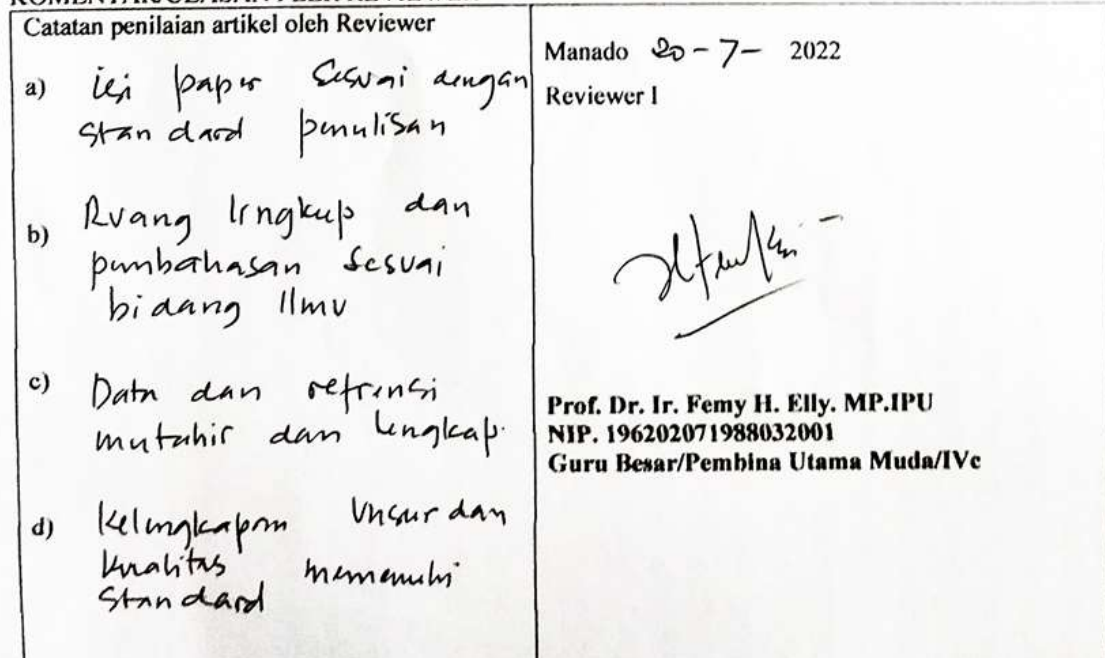 Catatan penilaian artikel oleh Reviewer
a) isi paper sesuai dengan
standard penulisan
b) Ruang lingkup dan
pembahasan sesuai
bidang Ilmu
c) Data dan refrensi
mutahir dan lengkap.
d) Kelengkapan Unsur dan
kualitas memenuhi
standard
Manado 20-7- 2022
Reviewer I
Prof. Dr. Ir. Femy H. Elly. MP.IPU
NIP. 196202071988032001
Guru Besar/Pembina Utama Muda/IVc